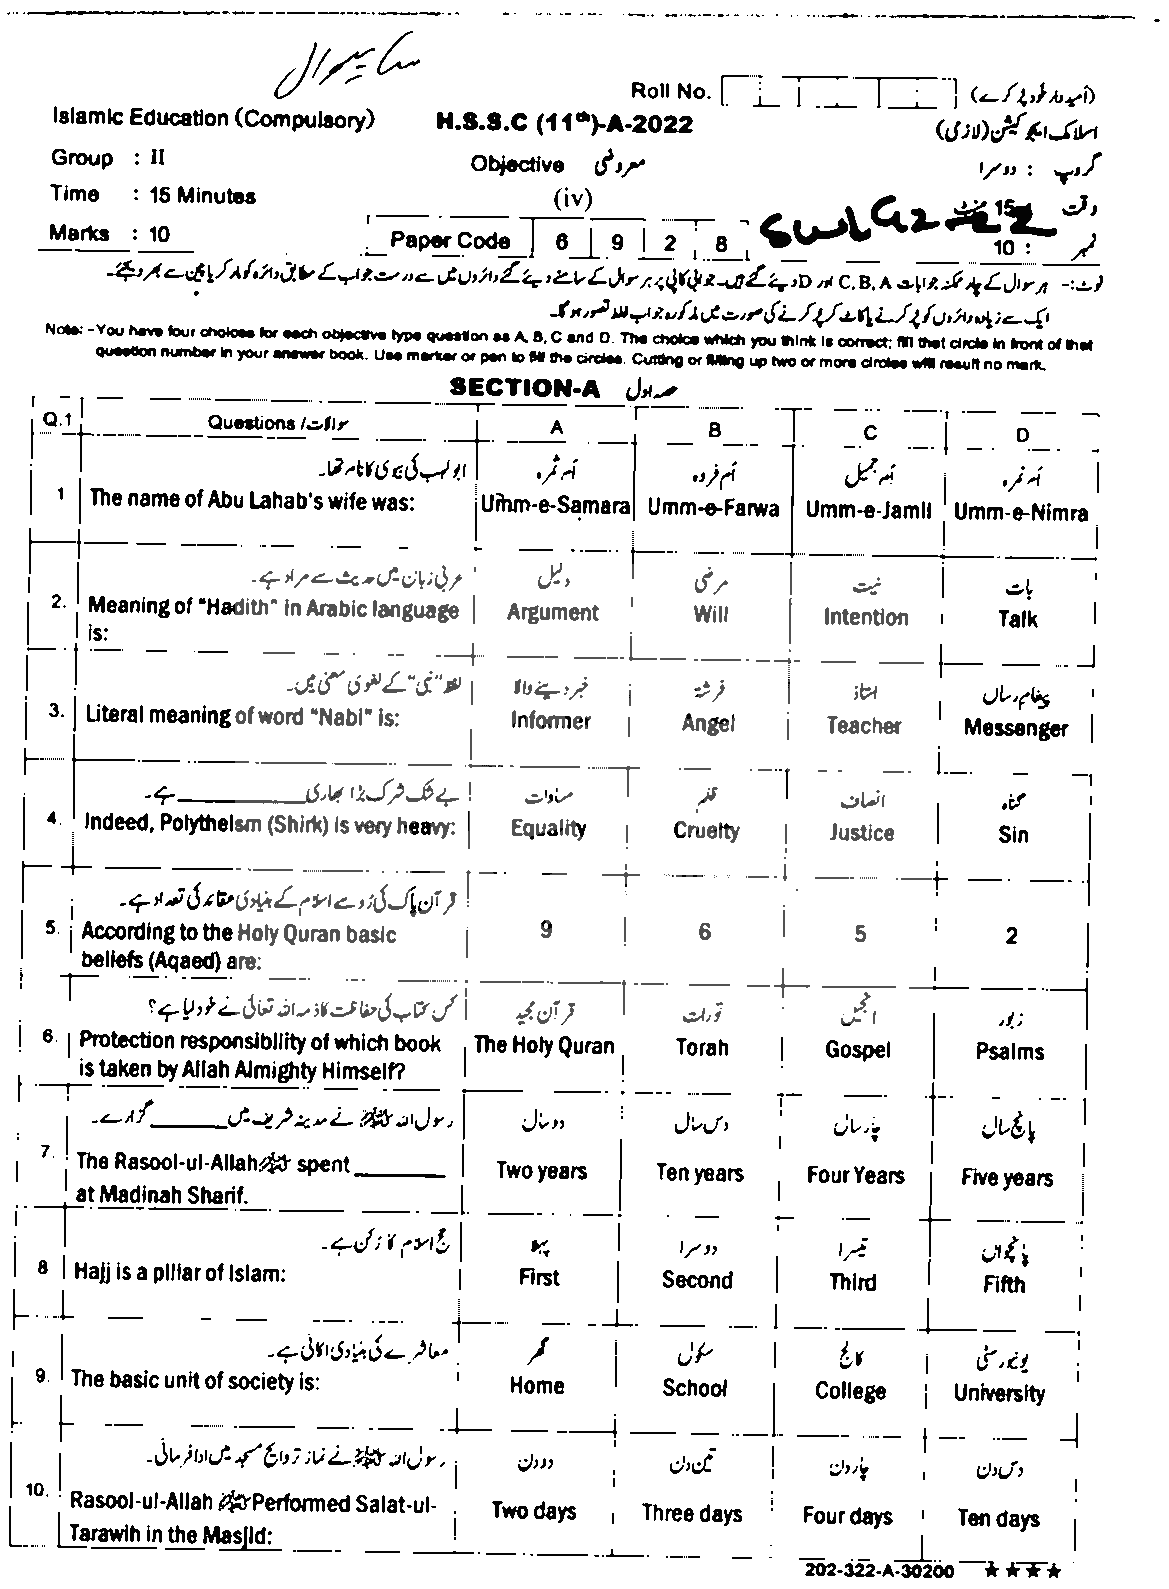 ساہیوال
Roll No. (امیدوار خود پُر کرے)
Islamic Education (Compulsory) H.S.S.C (11th)-A-2022 اسلامک ایجوکیشن (لازمی)
Group : II Objective معروضی گروپ : دوسرا
Time : 15 Minutes (iv) وقت : 15 منٹ
Marks : 10 Paper Code 6 9 2 8 نمبر : 10
نوٹ:- ہر سوال کے چار ممکنہ جوابات C, B, A اور D دیئے گئے ہیں۔ جوابی کاپی پر ہر سوال کے سامنے دیئے گئے دائروں میں سے درست جواب کے مطابق دائرہ کو مارکر یا پین سے بھر دیجئے۔
ایک سے زیادہ دائروں کو پُر کرنے یا کاٹ کر پُر کرنے کی صورت میں مذکورہ جواب غلط تصور ہو گا۔
Note: -You have four choices for each objective type question as A, B, C and D. The choice which you think is correct; fill that circle in front of that
question number in your answer book. Use marker or pen to fill the circles. Cutting or filling up two or more circles will result no mark.
SECTION-A حصہ اول
Q.1 Questions / سوالات A B C D
ابولہب کی بیوی کا نام تھا۔ اُم ثمرہ اُم فروہ اُم جمیل اُم نمرہ
1 The name of Abu Lahab's wife was: Umm-e-Samara Umm-e-Farwa Umm-e-Jamil Umm-e-Nimra
عربی زبان میں حدیث سے مراد ہے۔ دلیل مرضی نیت بات
2. Meaning of "Hadith" in Arabic language Argument Will Intention Talk
is:
لفظ "نبی" کے لغوی معنی ہیں۔ خبر دینے والا فرشتہ استاد پیغام رساں
3. Literal meaning of word "Nabi" is: Informer Angel Teacher Messenger
بے شک شرک بڑا بھاری ________ ہے۔ مساوات ظلم انصاف گناہ
4. Indeed, Polytheism (Shirk) is very heavy: Equality Cruelty Justice Sin
قرآن پاک کی رُو سے اسلام کے بنیادی عقائد کی تعداد ہے۔
5. According to the Holy Quran basic 9 6 5 2
beliefs (Aqaed) are:
کس کتاب کی حفاظت کا ذمہ اللہ تعالیٰ نے خود لیا ہے؟ قرآن مجید تورات انجیل زبور
6. Protection responsibility of which book The Holy Quran Torah Gospel Psalms
is taken by Allah Almighty Himself?
رسول اللہ ﷺ نے مدینہ شریف میں ________ گزارے۔ دو سال دس سال چار سال پانچ سال
7. The Rasool-ul-Allah ﷺ spent ________ Two years Ten years Four Years Five years
at Madinah Sharif.
حج اسلام کا رُکن ہے۔ پہلا دوسرا تیسرا پانچواں
8 Hajj is a pillar of Islam: First Second Third Fifth
معاشرے کی بنیادی اکائی ہے۔ گھر سکول کالج یونیورسٹی
9. The basic unit of society is: Home School College University
رسول اللہ ﷺ نے نماز تراویح مسجد میں ادا فرمائی۔ دو دن تین دن چار دن دس دن
10. Rasool-ul-Allah ﷺ Performed Salat-ul- Two days Three days Four days Ten days
Tarawih in the Masjid:
202-322-A-30200 ★★★★